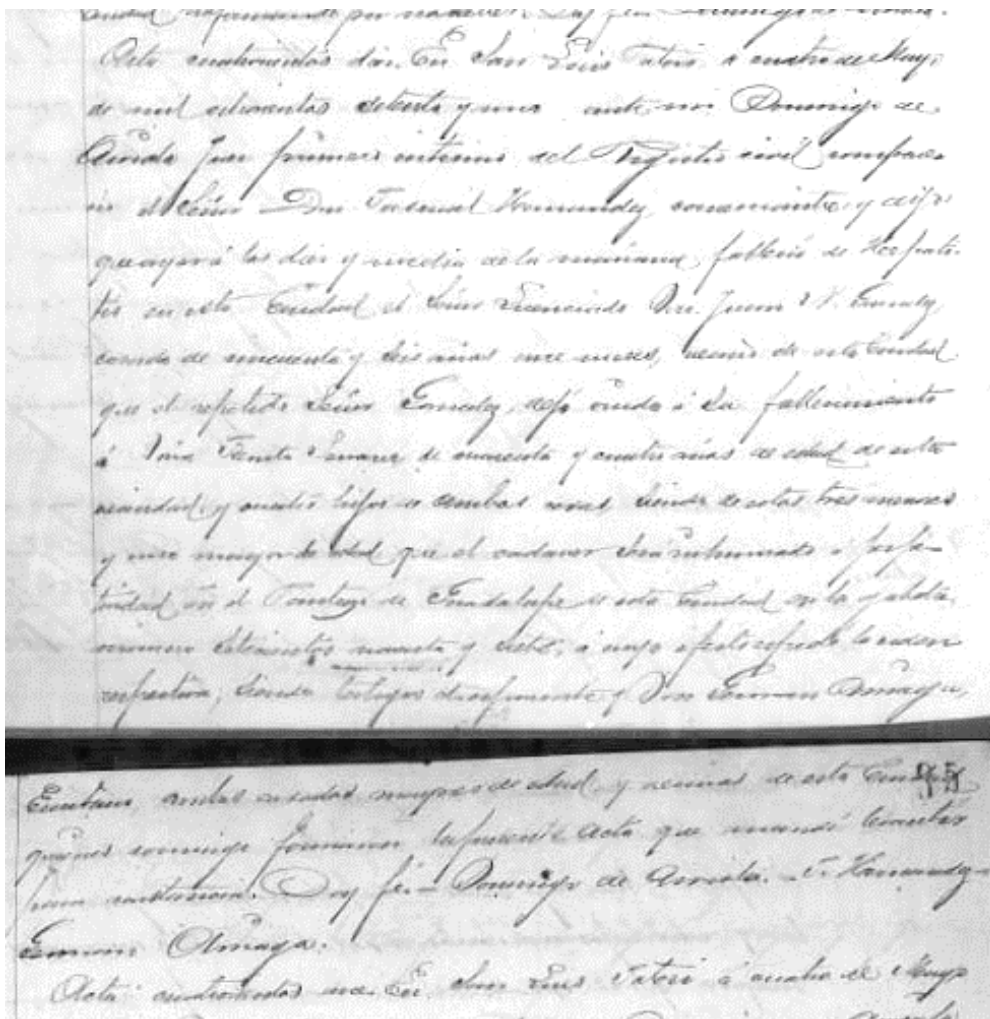 Acta cuatrocientos dos. En San Luis Potosí, a cuatro de Mayo
de mil ochocientos setenta y uno ante mí Domingo de
Arriola Juez primero interino del Registro civil comparе-
ció el Señor Don Pascual Hernandez, comerciante, y dijo
que ayer á las diez y media de la mañana falleció de Hepati-
tis en esta Ciudad el Señor Licenciado Don Juan N. Gonzalez
casado de cincuenta y seis años once meses, vecino de esta Ciudad
que el repetido Señor Gonzalez, dejó viuda á su fallecimiento
á Doña Benita de cuarenta y cuatro años de edad de esta
vecindad, y cuatro hijos de ambos siendo de estos tres menores
y uno mayor de edad, que el cadaver será inhumado á perpe-
tuidad en el Panteon de Guadalupe de esta Ciudad en la gabeta
numero setecientos noventa y siete, á cuyo efecto espedí la orden
respectiva, siendo testigos el esponente y Don German Arriaga,
ambos casados mayores de edad, y vecinos de esta Ciudad
quienes conmigo firmaron la presente acta que mandé levantar
para constancia. Doy fé. — Domingo de Arriola. — P. Hernandez —
German Arriaga.
Acta cuatrocientos tres. En San Luis Potosí á cuatro de Mayo